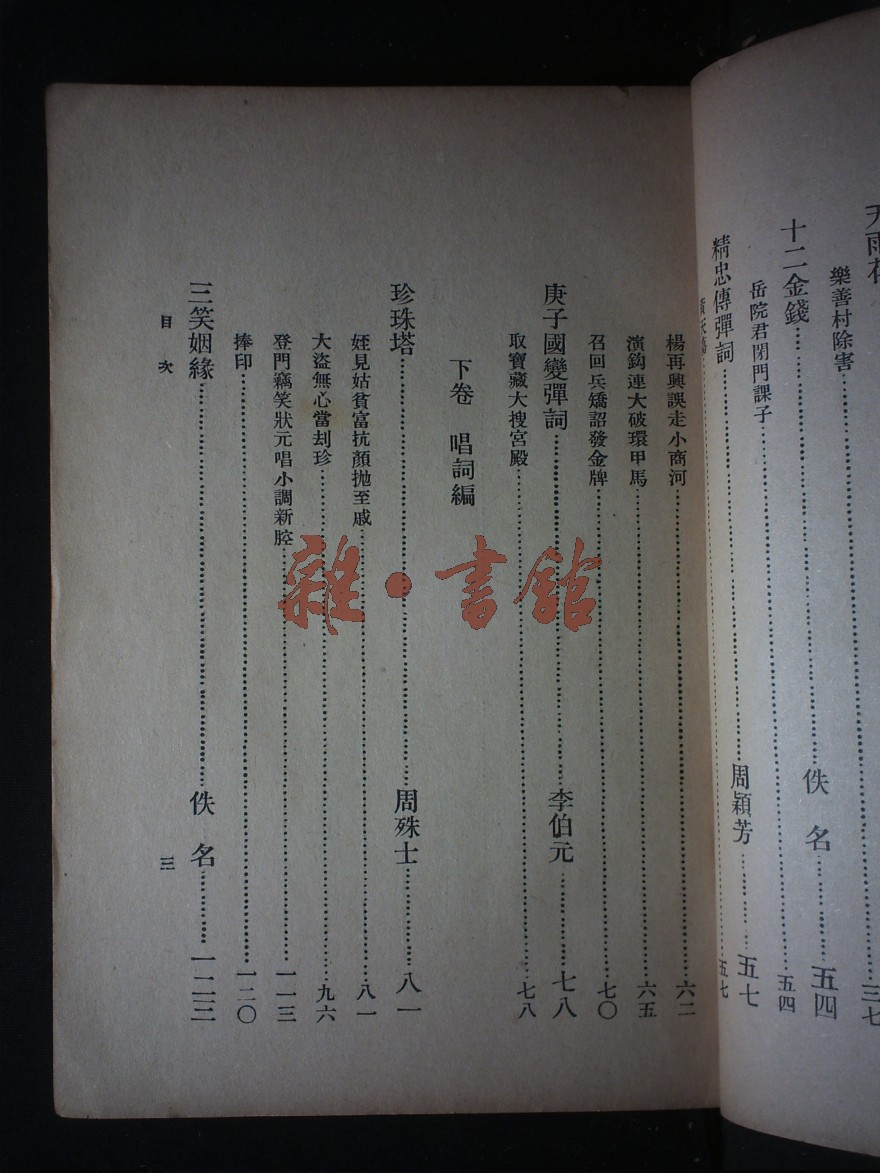 樂善村除害
三七
十二金錢 佚名 五四
岳院君閉門課子 五四
精忠傳彈詞 周穎芳 五七
五七
楊再興誤走小商河 六二
演鈎連大破環甲馬 六五
召回兵矯詔發金牌 七〇
庚子國變彈詞 李伯元 七八
取寶藏大搜宮殿 七八
下卷 唱詞編
珍珠塔 周殊士 八一
姪見姑貧富抗顏拋至戚 八一
大盜無心當刦珍 九六
登門竊笑狀元唱小調新腔 一一三
捧印 一二〇
三笑姻緣 佚名 一二三
目次 三
雜·書館